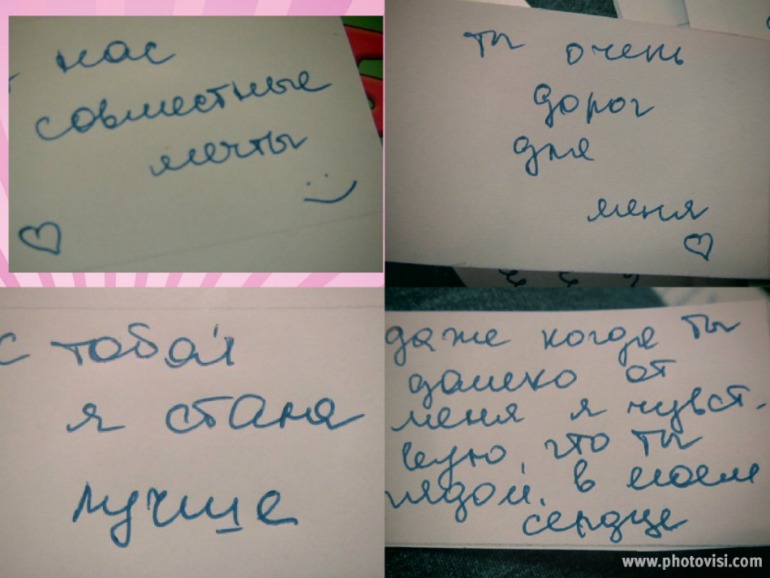 нас
совместные
мечты :)
♡
ты очень
дорог
для
меня
♡
с тобой
я стала
лучше
даже когда ты
далеко от
меня я чувст-
вую, что ты
рядом, в моем
сердце
www.photovisi.com